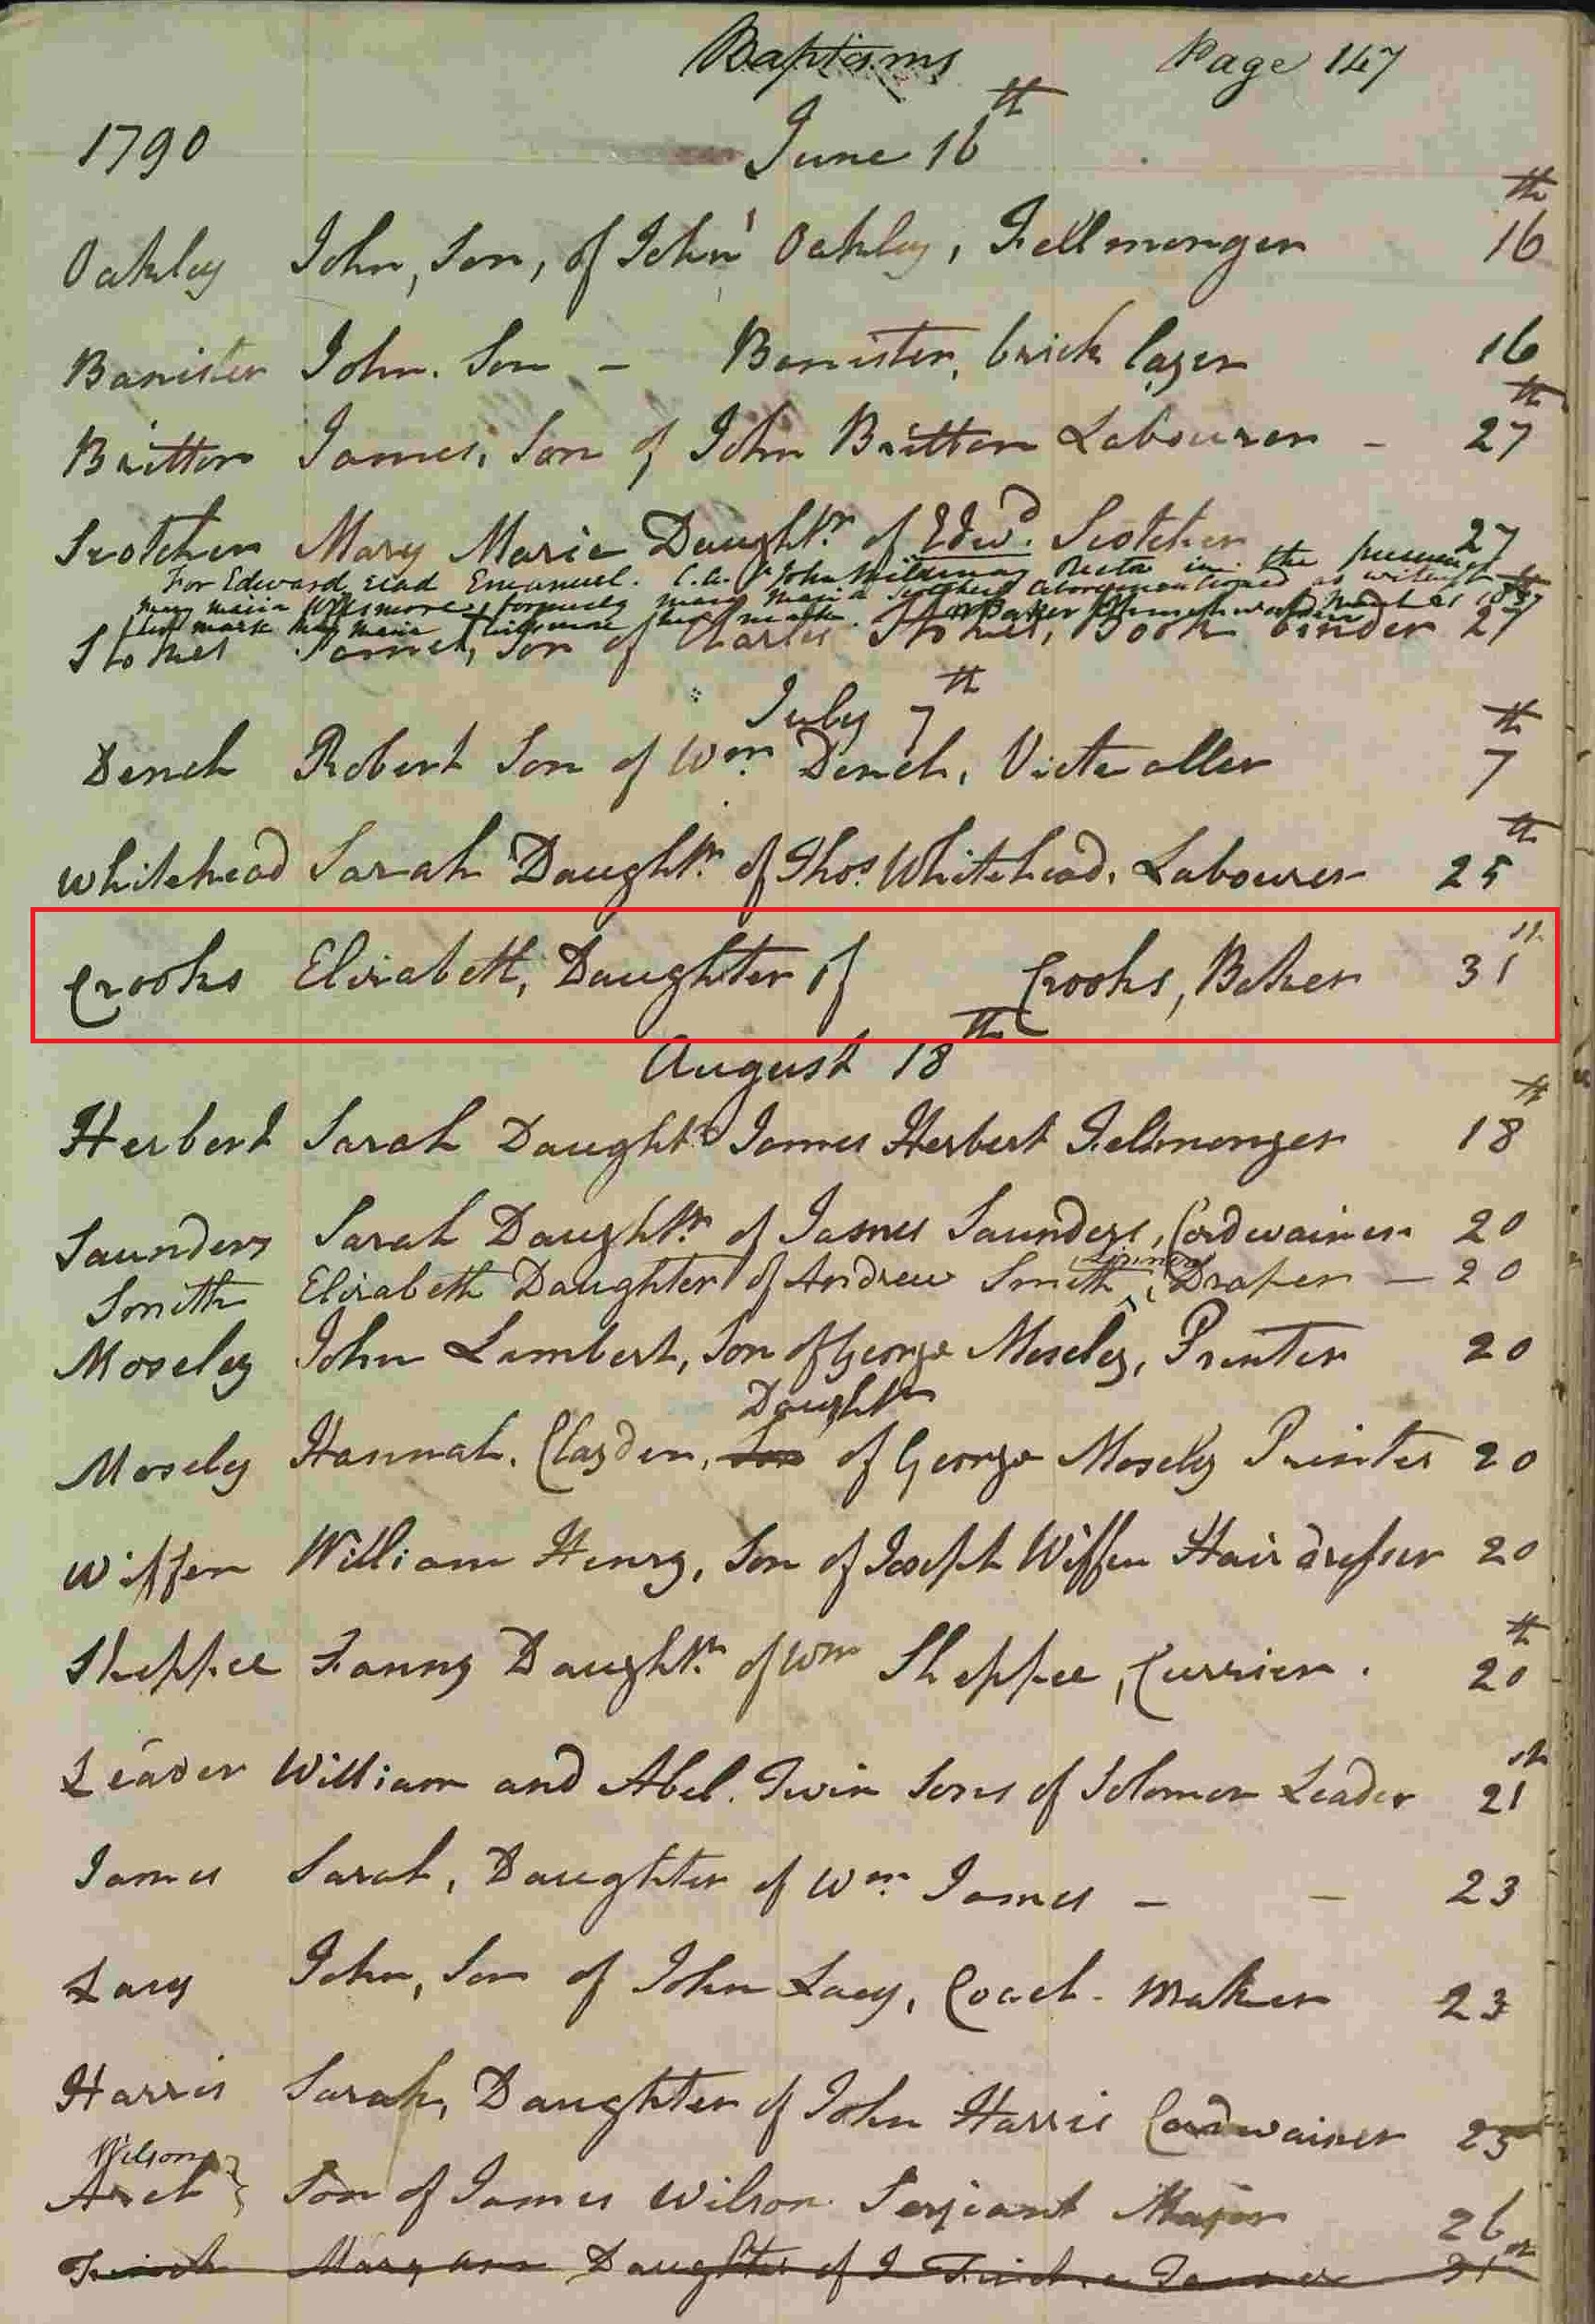 Baptisms Page 147
1790 June 16th
Oakley John, Son, of John Oakley, Fellmonger 16th
Banister John. Son – Banister, brick layer 16
Britton James, Son of John Britton Labourer – 27th
Scotcher Mary Maria Daughtr. of Edwd. Scotcher 27
For Edward read Emanuel. C.A. St John Mildmay Rector in the presence of
Mary Maria formerly Mary Maria Scotcher abovementioned as witness
her mark Mary Maria her mark. Baker
Stokes James, Son of Charles Stokes, Book binder 27
July 7th
Dench Robert Son of Wm. Dench, Victualler 7th
Whitehead Sarah Daughtr. of Thos. Whitehead, Labourer 25th
Crooks Elizabeth, Daughter of Crooks, Baker 31st
August 18th
Herbert Sarah Daughtr. James Herbert Fellmonger 18th
Saunders Sarah Daughtr. of James Saunders, Cordwainer 20
Smith Elizabeth Daughter of Andrew Smith, Linnen Draper – 20
Moseley John Lambert, Son of George Moseley, Printer 20
Daughtr
Mosely Hannah. Clayden, Son of George Mosely Printer 20
Wiffen William Henry, Son of Joseph Wiffen Hair dresser 20
Sheppee Fanny Daughtr. of Wm Sheppee, Currier. 20th
Leader William and Abel. Twin Sons of Solomon Leader 21st
James Sarah, Daughter of Wm. James – – 23
Lacy John, Son of John Lacy, Coach-maker 23
Harris Sarah, Daughter of John Harris Cordwainer 25
Wilson
Son of James Wilson Serjeant Major 26
Finch Mary Ann Daughter of J Finch a 31st